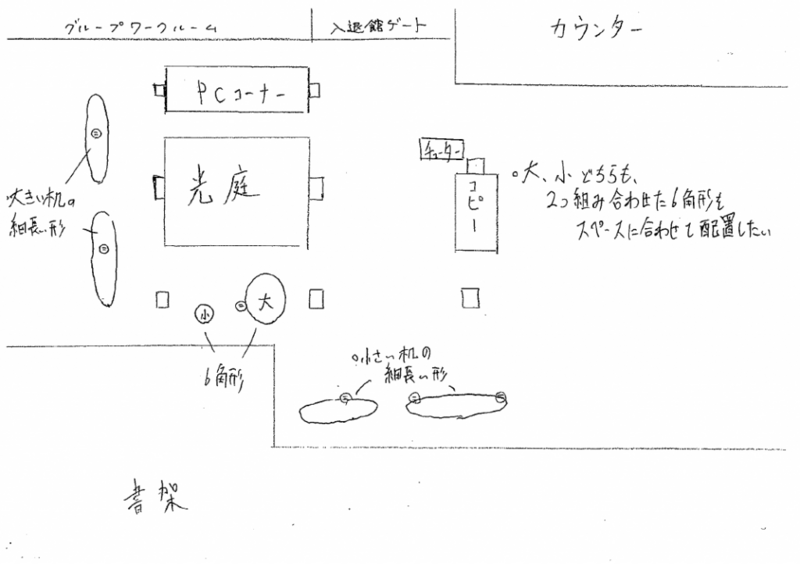 グループワークルーム
入退館ゲート
カウンター
PCコーナー
大きい机の
細長い形
光庭
チューター
コピー
○大、小どちらも、
2つ組み合わせた6角形も
スペースに合わせて配置したい
小
大
6角形
○小さい机の
細長い形
書架